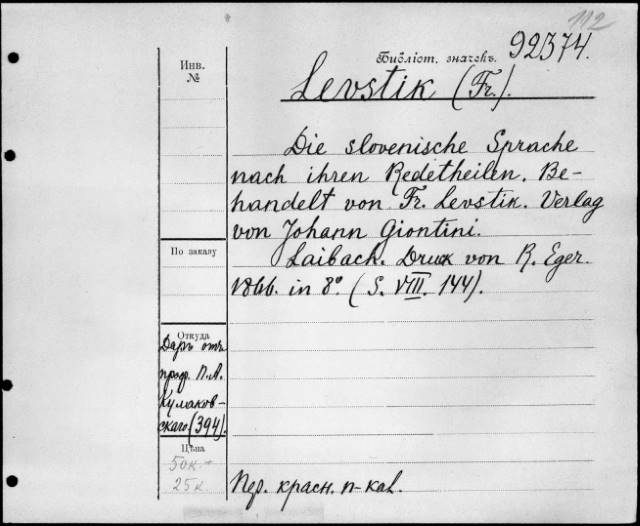 112
Инв.
№
Библіот. значекъ. 92374.
Levstik (Fr.).
Die slovenische Sprache
nach ihren Redetheilen. Be-
handelt von Fr. Levstik. Verlag
von Johann Giontini.
Laibach. Druck von R. Eger.
1866. in 8°. (S. VIII. 144).
По заказу
Откуда
Даръ отъ
проф. П.А.
Кулаков-
скаго (394).
Цѣна
50к.
25к.
Пер. красн. п-кал.